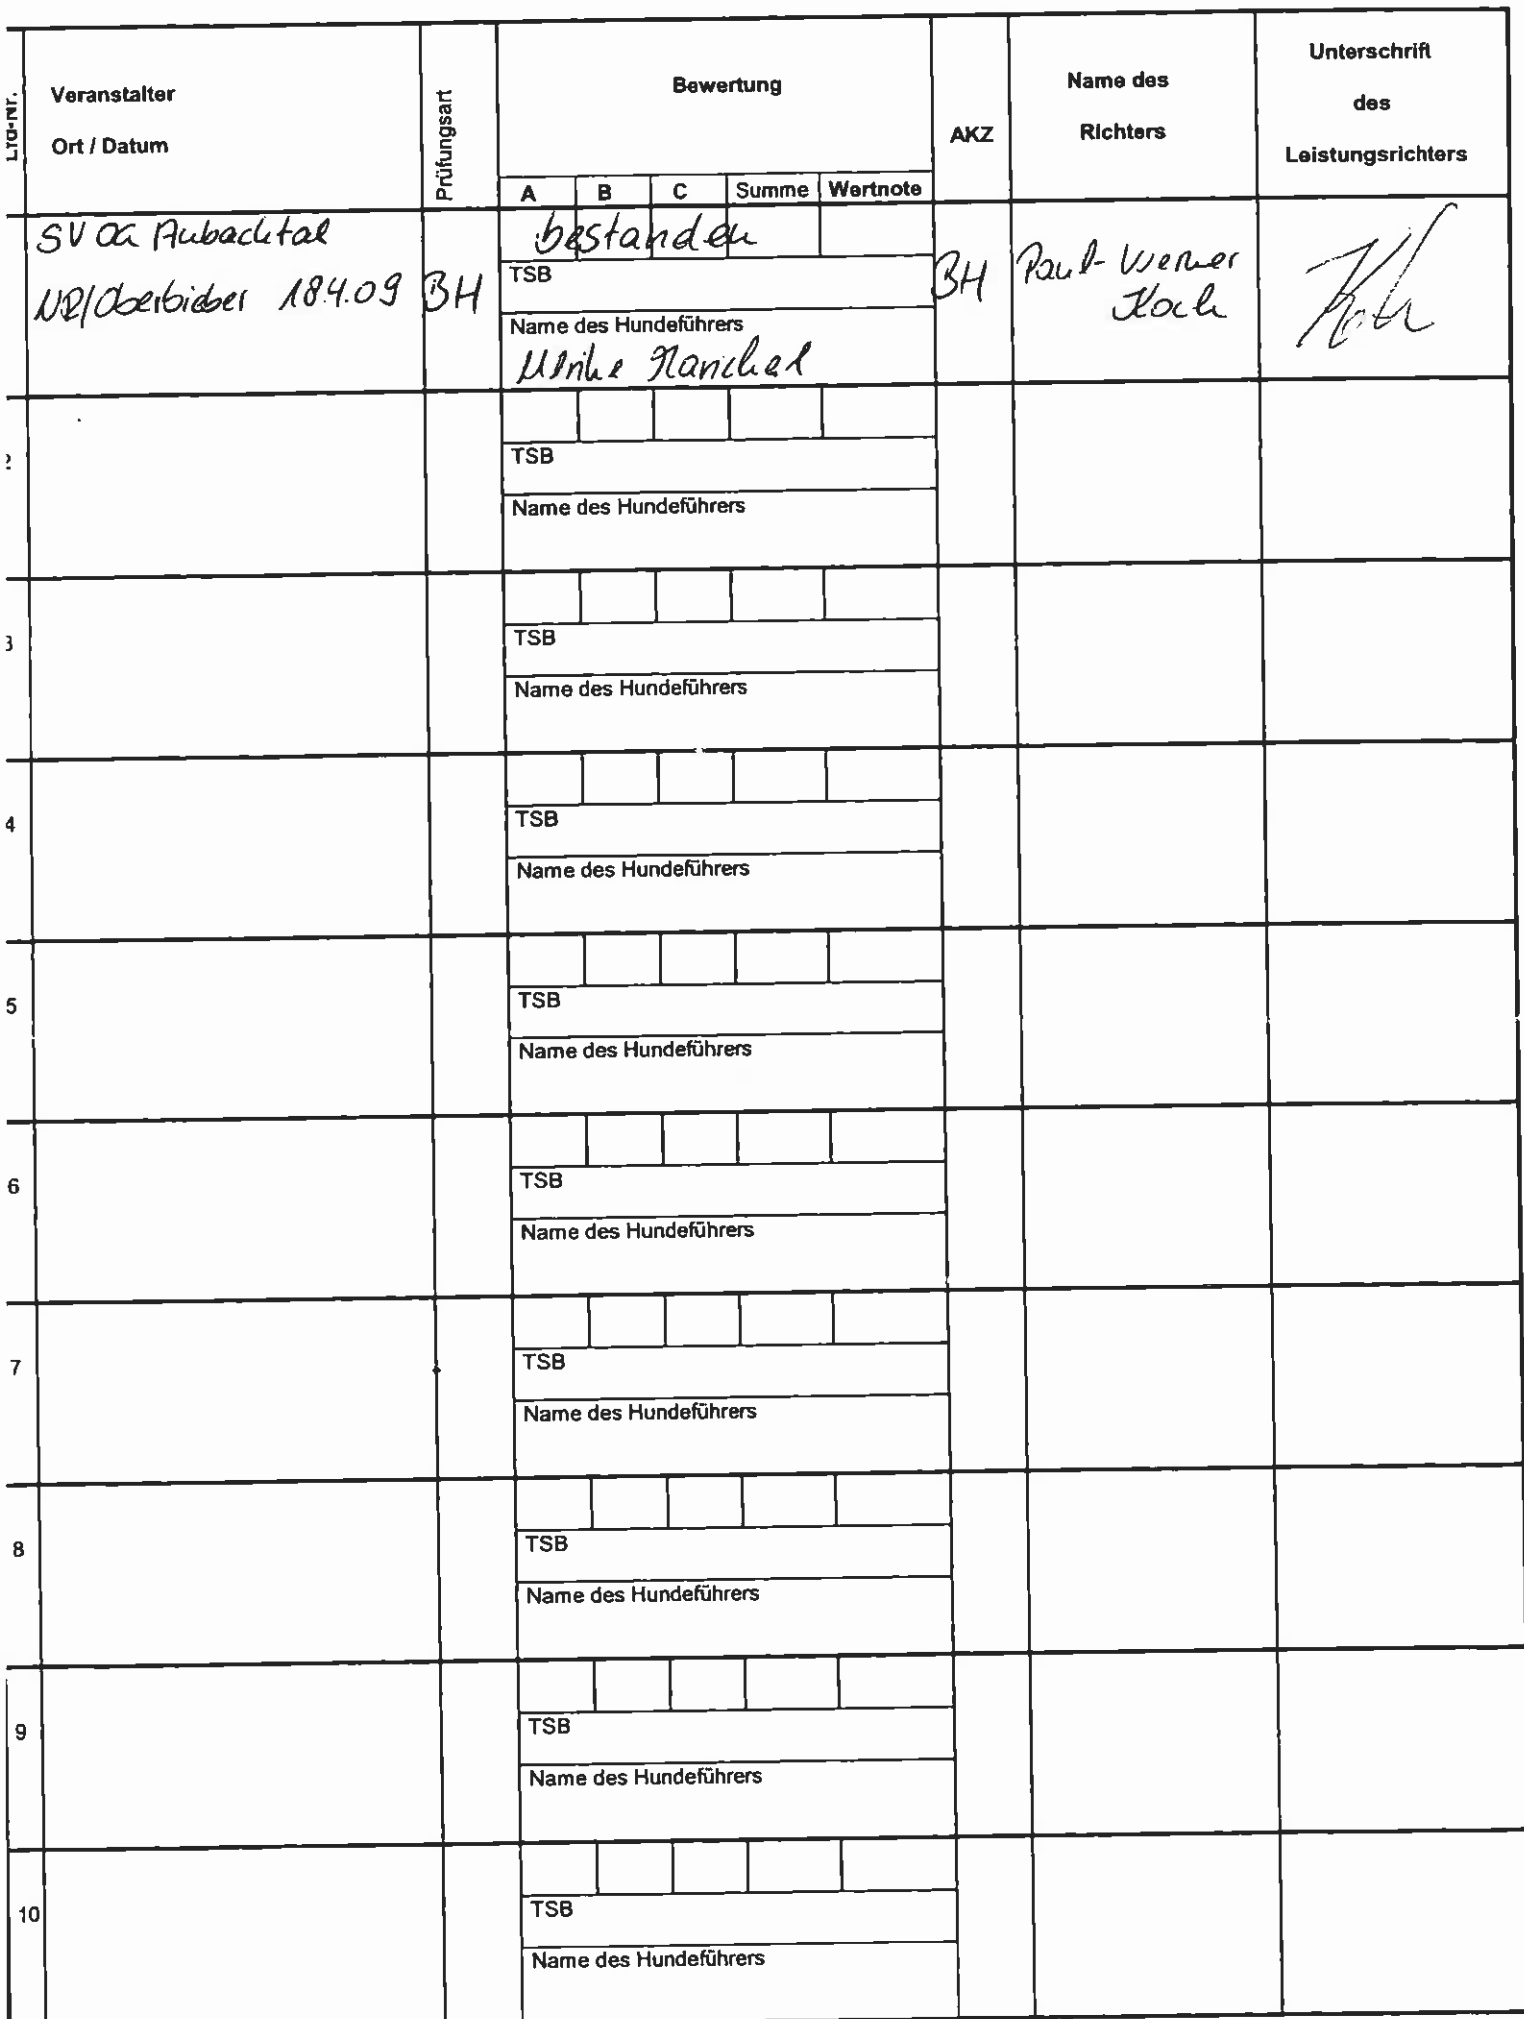 Lfd-Nr.
Veranstalter
Ort / Datum
Prüfungsart
Bewertung
A B C Summe Wertnote
AKZ
Name des
Richters
Unterschrift
des
Leistungsrichters
SV OG Aubachtal
NR/Oberbieber 18.4.09
BH
bestanden
TSB
Name des Hundeführers
Ulrike
BH
Paul-Werner
Koch
Koch
2
TSB
Name des Hundeführers
3
TSB
Name des Hundeführers
4
TSB
Name des Hundeführers
5
TSB
Name des Hundeführers
6
TSB
Name des Hundeführers
7
TSB
Name des Hundeführers
8
TSB
Name des Hundeführers
9
TSB
Name des Hundeführers
10
TSB
Name des Hundeführers